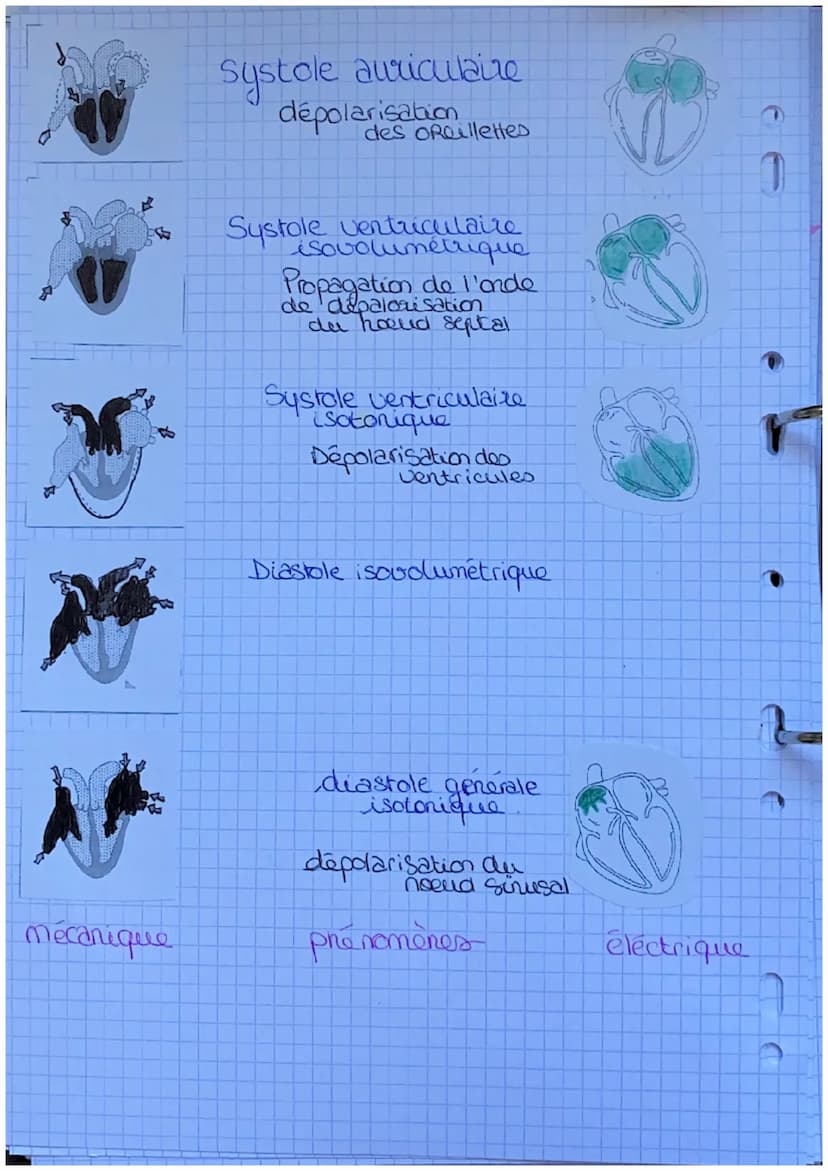 Systole auriculaire
dépolarisation
des oreillettes
Systole ventriculaire
isovolumétrique
Propagation de l'onde
de dépalorisation
du noeud septal
Systole ventriculaire
isotonique
Dépolarisation des
ventricules
Diastole isovolumétrique
diastole générale
isotonique.
dépolarisation du
noeud sinusal
mécanique phénomènes éléctrique